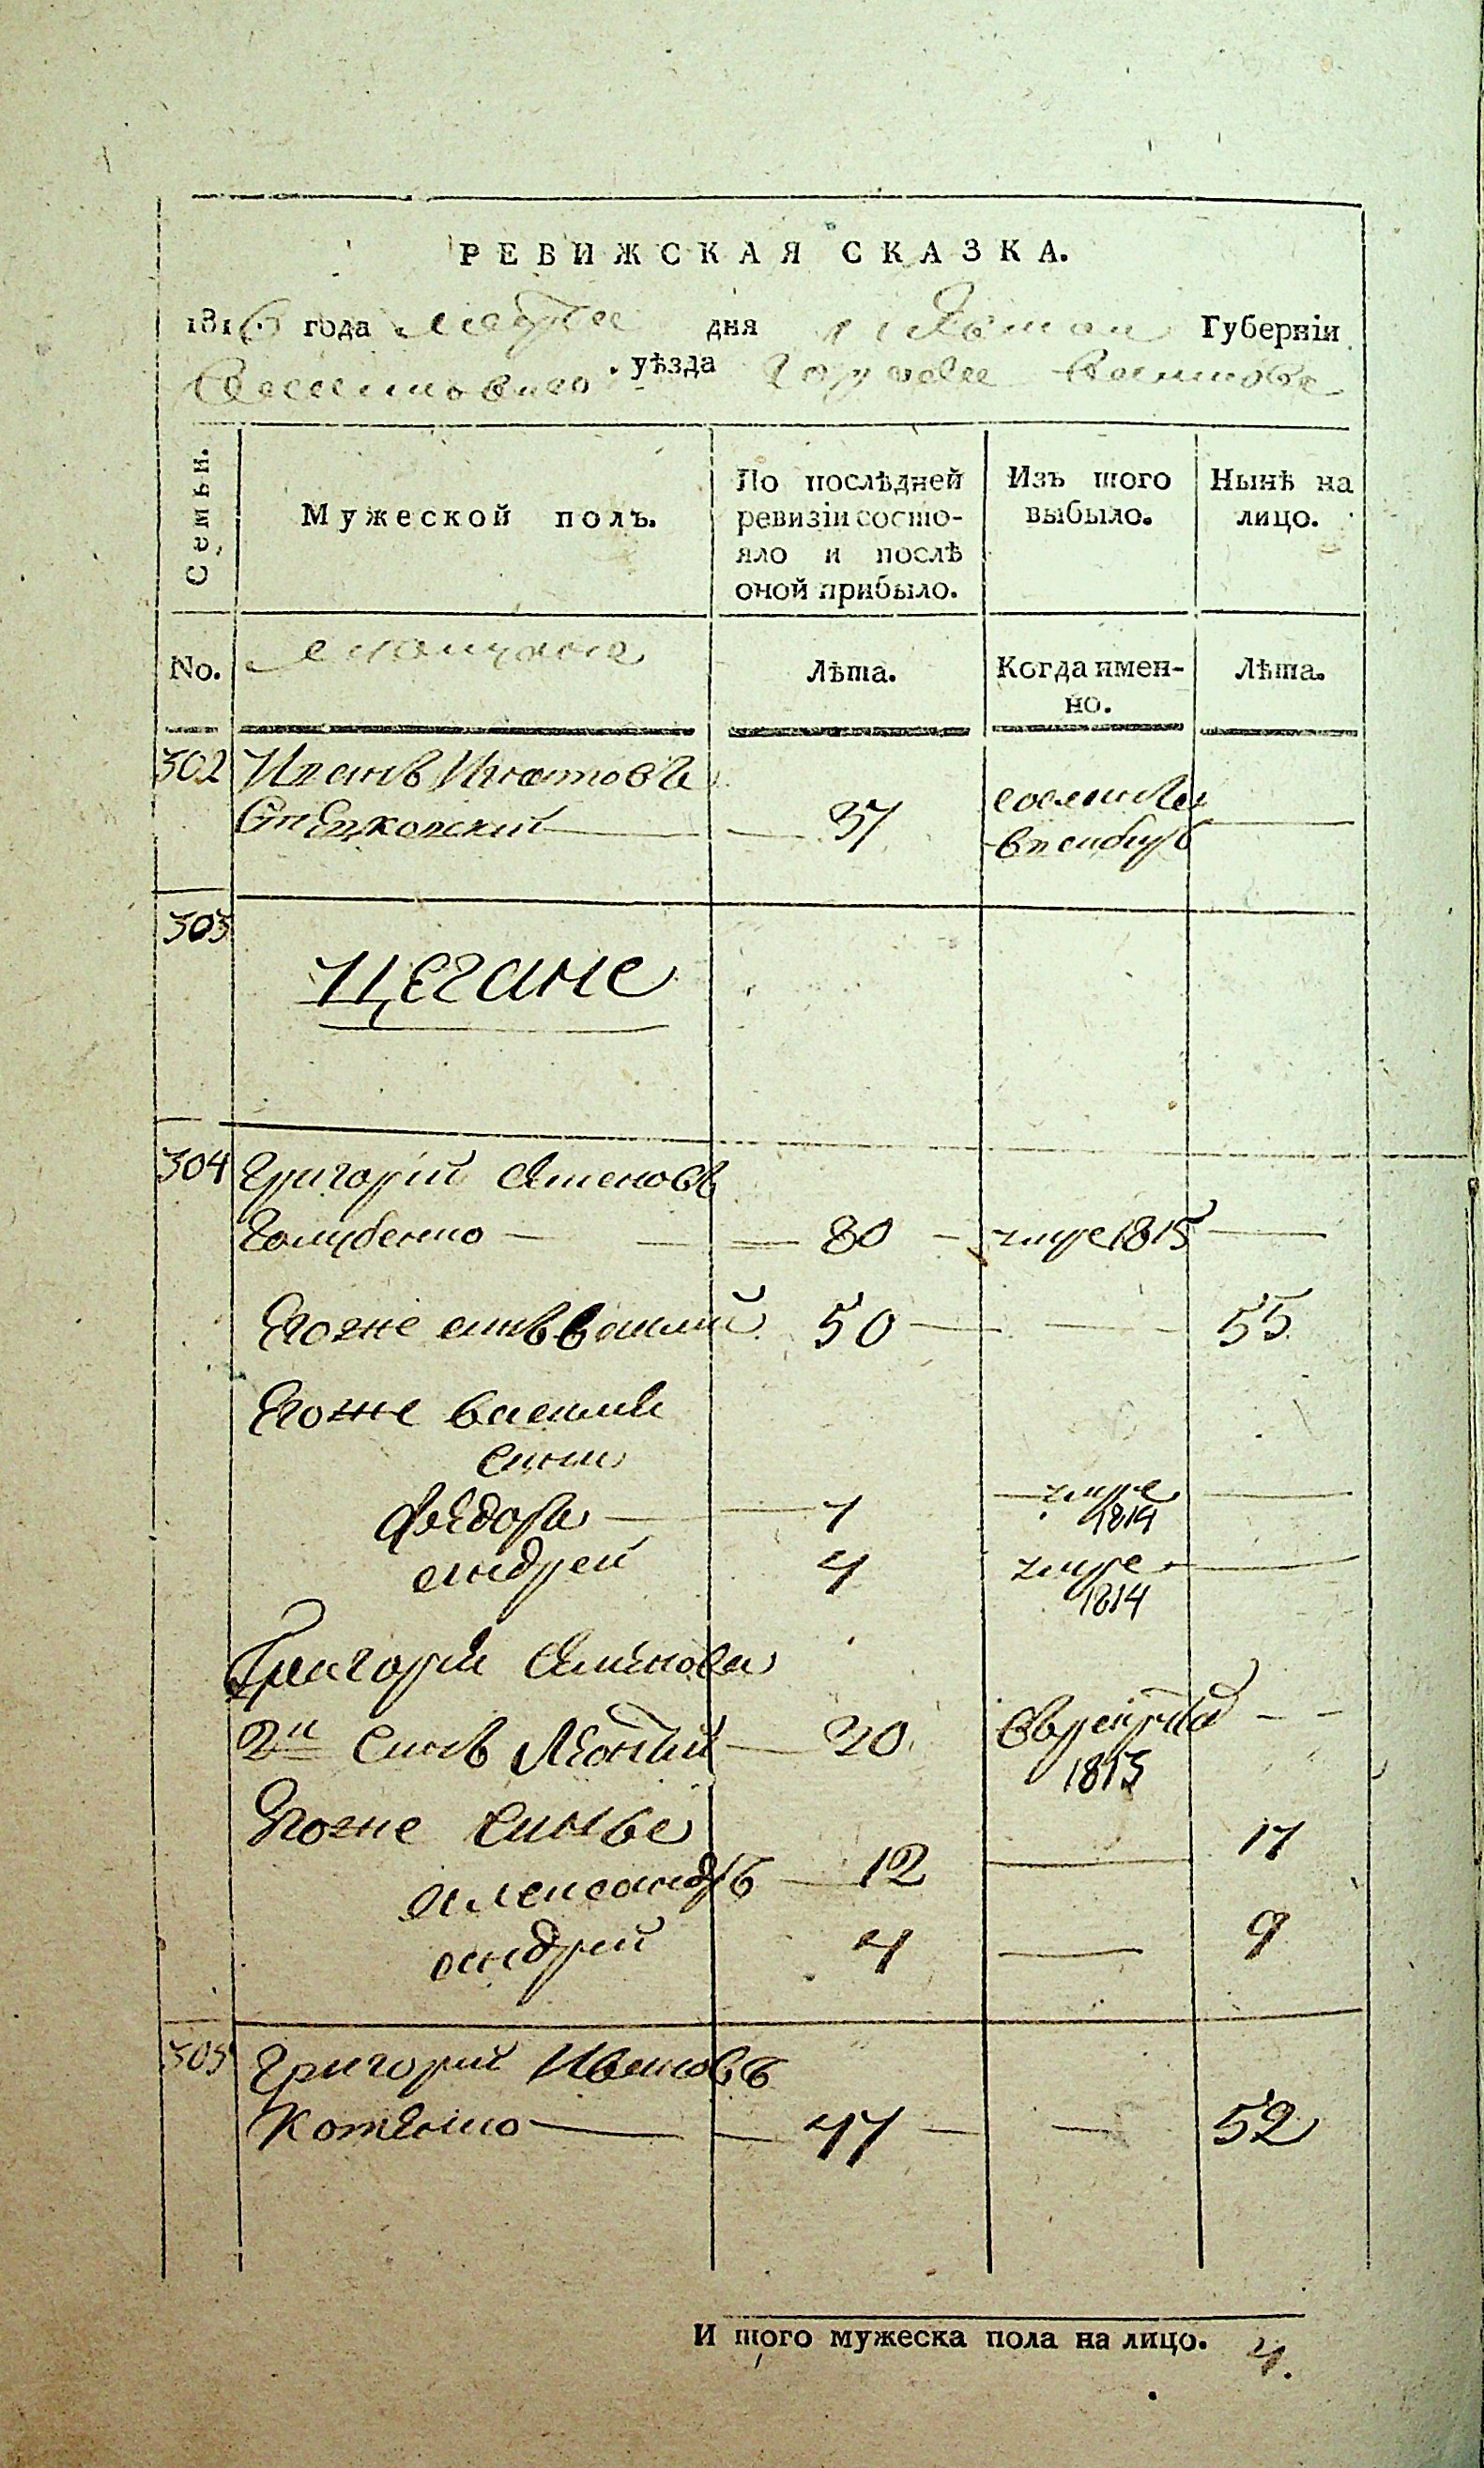 РЕВИЖСКАЯ СКАЗКА.
1816 года марта дня Губерніи
уѣзда города
Семьи. Мужеской полъ. По послѣдней ревизіи состо-яло и послѣ оной прибыло. Изъ того выбыло. Нынѣ на лицо.
No. Лѣта. Когда имен-но. Лѣта.
302 Иванъ Игнатовъ
37 сосланъ
в сибирь
303
Цегане
304 Григорій Семеновъ
Голубенко 80 умре 1815
Егоже синъ василий 50 55
Егоже василия
сини
Федоръ 7 умре 1814
андрей 4 умре 1814
Григория Семенова
2й синъ Леонтий 20 в рекруты 1813
Егоже синове
александръ 12 17
андрей 4 9
305 Григорий Ивановъ
47 52
И того мужеска пола на лицо. 4.